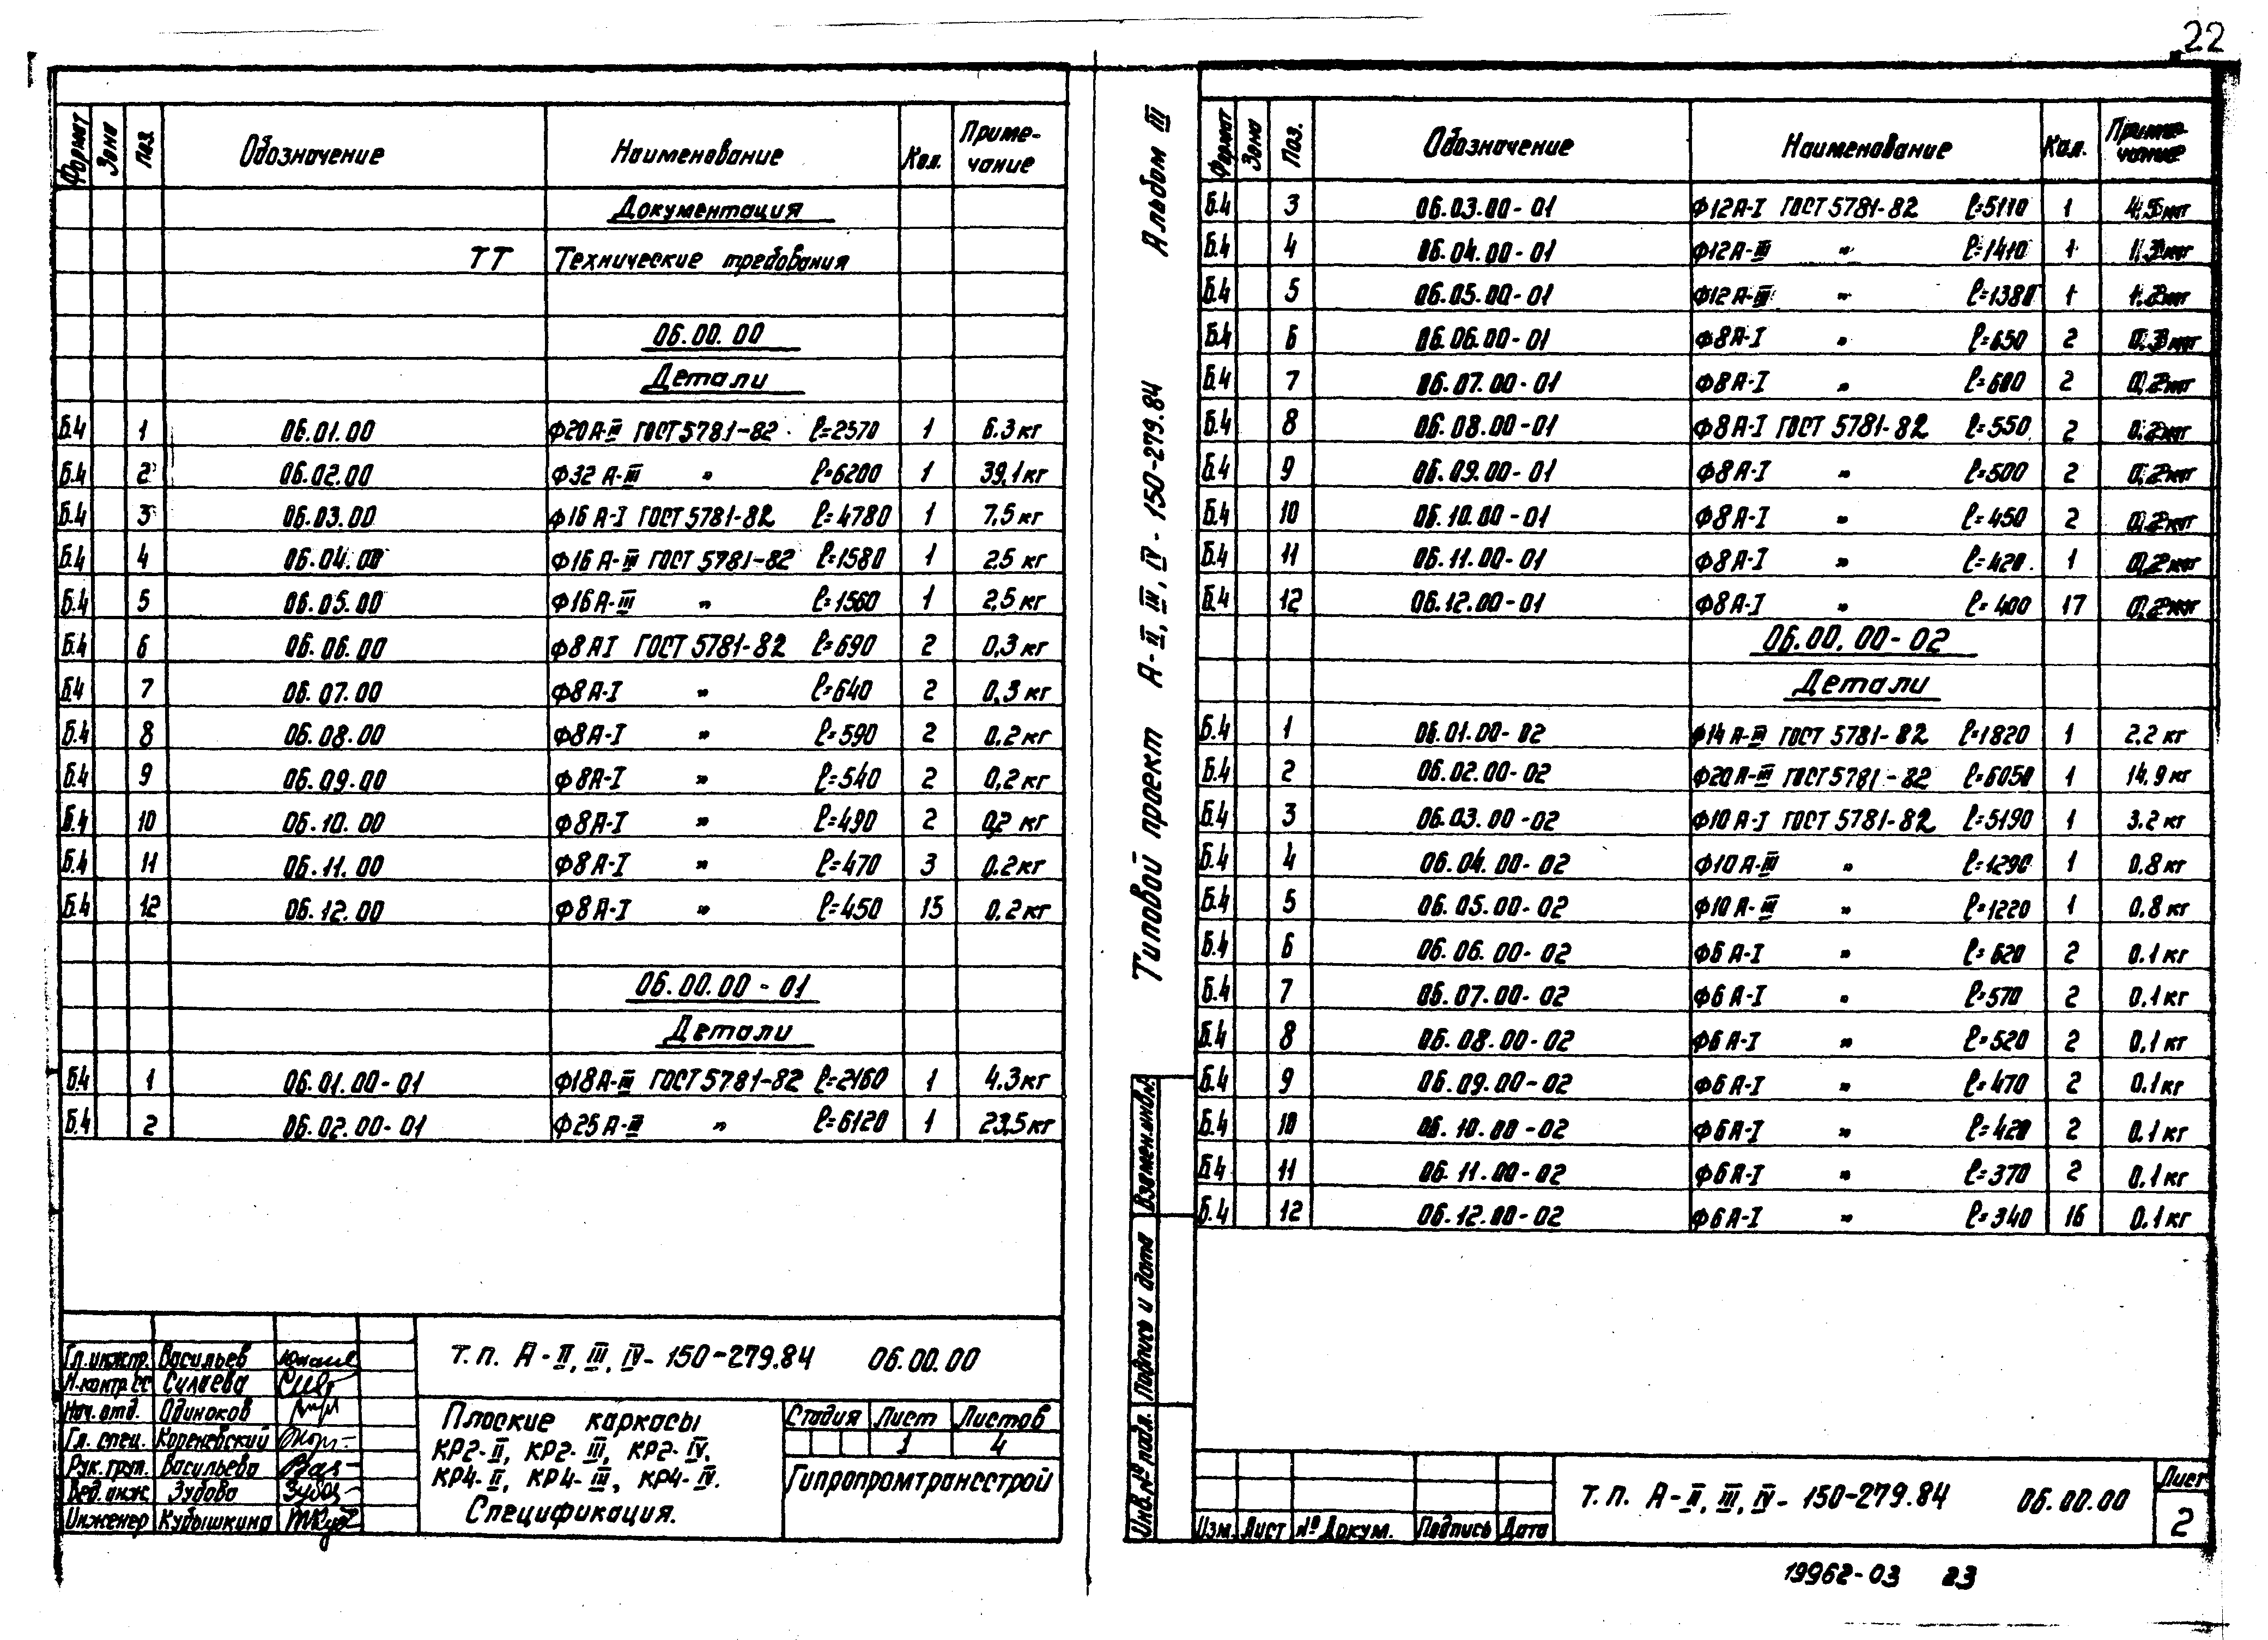 22
Формат Зона Поз. Обозначение Наименование Кол. Приме-
чание
Документация
ТТ Технические требования
06.00.00
Детали
Б.4 1 06.01.00 Ф20А-III ГОСТ 5781-82 ℓ=2570 1 6.3 кг
Б.4 2 06.02.00 Ф32 А-III " ℓ=6200 1 39,1 кг
Б.4 3 06.03.00 Ф16 А-I ГОСТ 5781-82 ℓ=4780 1 7,5 кг
Б.4 4 06.04.00 Ф16 А-III ГОСТ 5781-82 ℓ=1580 1 2,5 кг
Б.4 5 06.05.00 Ф16А-III " ℓ=1560 1 2,5 кг
Б.4 6 06.06.00 Ф8 АI ГОСТ 5781-82 ℓ=690 2 0,3 кг
Б.4 7 06.07.00 Ф8 А-I " ℓ=640 2 0,3 кг
Б.4 8 06.08.00 Ф8 А-I " ℓ=590 2 0.2 кг
Б.4 9 06.09.00 Ф8А-I " ℓ=540 2 0,2 кг
Б.4 10 06.10.00 Ф8А-I " ℓ=490 2 0,2 кг
Б.4 11 06.11.00 Ф8А-I " ℓ=470 3 0.2 кг
Б.4 12 06.12.00 Ф8А-I " ℓ=450 15 0.2 кг
06.00.00-01
Детали
Б.4 1 06.01.00-01 Ф18А-III ГОСТ 5781-82 ℓ=2160 1 4.3 кг
Б.4 2 06.02.00-01 Ф25 А-III " ℓ=6120 1 23,5 кг
Гл.инж.пр. Васильев
Н.контр.СС Силаева
Нач. отд. Одиноков
Гл. спец. Кореневский
Рук. груп. Васильева
Вед. инж. Зубова
Инженер Кубышкина
Т.П. А-II, III, IV-150-279.84 06.00.00
Плоские каркасы
КР2-II, КР2-III, КР2-IV.
КР4-II, КР4-III, КР4-IV.
Спецификация.
Стадия Лист Листов
1 4
Гипропромтрансстрой
Типовой проект А-II, III, IV-150-279.84 Альбом III
Взамен.инв.№
Подпись и дата
Инв.№ подл.
Формат Зона Поз. Обозначение Наименование Кол. Приме-
чание
Б.4 3 06.03.00-01 Ф12А-I ГОСТ 5781-82 ℓ=5110 1 4,5 кг
Б.4 4 06.04.00-01 Ф12А-III " ℓ=1410 1
Б.4 5 06.05.00-01 Ф12 А-III " ℓ=1380 1 1.2 кг
Б.4 6 06.06.00-01 Ф8А-I " ℓ=650 2 0.3 кг
Б.4 7 06.07.00-01 Ф8А-I " ℓ=600 2 0,2 кг
Б.4 8 06.08.00-01 Ф8А-I ГОСТ 5781-82 ℓ=550 2 0.2 кг
Б.4 9 06.09.00-01 Ф8А-I " ℓ=500 2 0,2 кг
Б.4 10 06.10.00-01 Ф8А-I " ℓ=450 2 0.2 кг
Б.4 11 06.11.00-01 Ф8А-I " ℓ=420 1 0,2 кг
Б.4 12 06.12.00-01 Ф8А-I " ℓ=400 17 0,2 кг
06.00.00-02
Детали
Б.4 1 06.01.00-02 Ф14 А-III ГОСТ 5781-82 ℓ=1820 1 2.2 кг
Б.4 2 06.02.00-02 Ф20А-III ГОСТ 5781-82 ℓ=6050 1 14.9 кг
Б.4 3 06.03.00-02 Ф10 А-I ГОСТ 5781-82 ℓ=5190 1 3.2 кг
Б.4 4 06.04.00-02 Ф10 А-III " ℓ=1290 1 0.8 кг
Б.4 5 06.05.00-02 Ф10 А-III " ℓ=1220 1 0.8 кг
Б.4 6 06.06.00-02 Ф6 А-I " ℓ=620 2 0.1 кг
Б.4 7 06.07.00-02 Ф6 А-I " ℓ=570 2 0,1 кг
Б.4 8 06.08.00-02 Ф6 А-I " ℓ=520 2 0,1 кг
Б.4 9 06.09.00-02 Ф6А-I " ℓ=470 2 0.1 кг
Б.4 10 06.10.00-02 Ф6А-I " ℓ=420 2 0.1 кг
Б.4 11 06.11.00-02 Ф6 А-I " ℓ=370 2 0.1 кг
Б.4 12 06.12.00-02 Ф6 А-I " ℓ=340 16 0.1 кг
Изм. Лист № Докум. Подпись Дата
Т.П. А-II, III, IV-150-279.84 06.00.00
Лист
2
19962-03 23